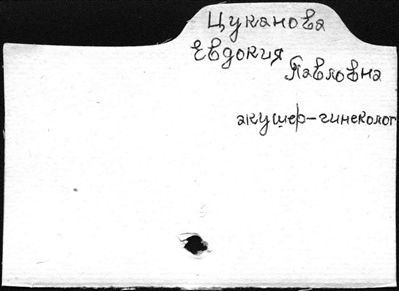 Цуканова
Евдокия
Павловна
акушер-гинеколог